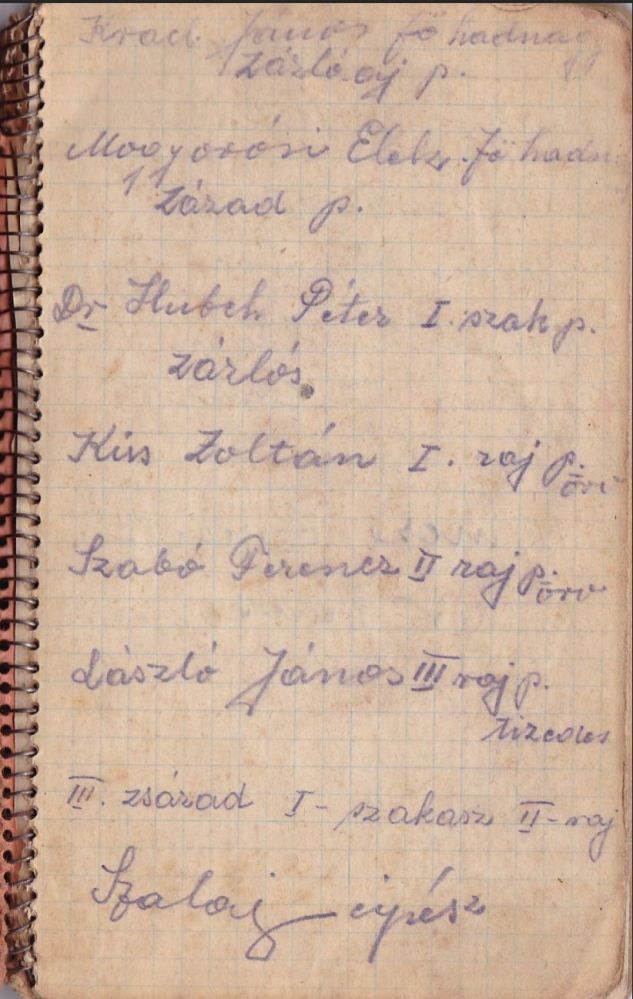 János főhadnagy
Zászlóalj p.
Mogyorósi Elek főhadn
Század p.
Dr Hubch Péter I. szak p.
zászlós
Kiss Zoltán I. raj p.
örv
Szabó Ferencz II raj p.
örv
László János III raj p.
tizedes
III. zsázad I - szakasz II - raj
Szalai cipész